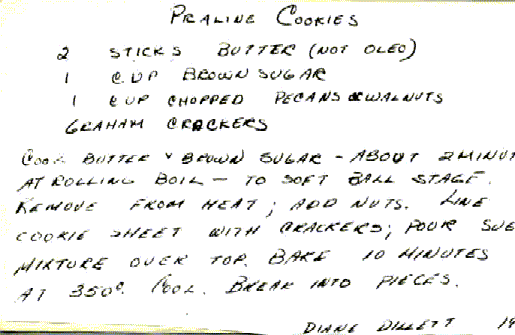 PRALINE COOKIES
2 STICKS BUTTER (NOT OLEO)
1 CUP BROWN SUGAR
1 CUP CHOPPED PECANS WALNUTS
GRAHAM CRACKERS
COOK BUTTER & BROWN SUGAR - ABOUT 2 MINUT
AT ROLLING BOIL - TO SOFT BALL STAGE.
REMOVE FROM HEAT; ADD NUTS. LINE
COOKIE SHEET WITH CRACKERS; POUR
MIXTURE OVER TOP. BAKE 10 MINUTES
AT 350°. COOL. BREAK INTO PIECES.
DIANE DILLETT